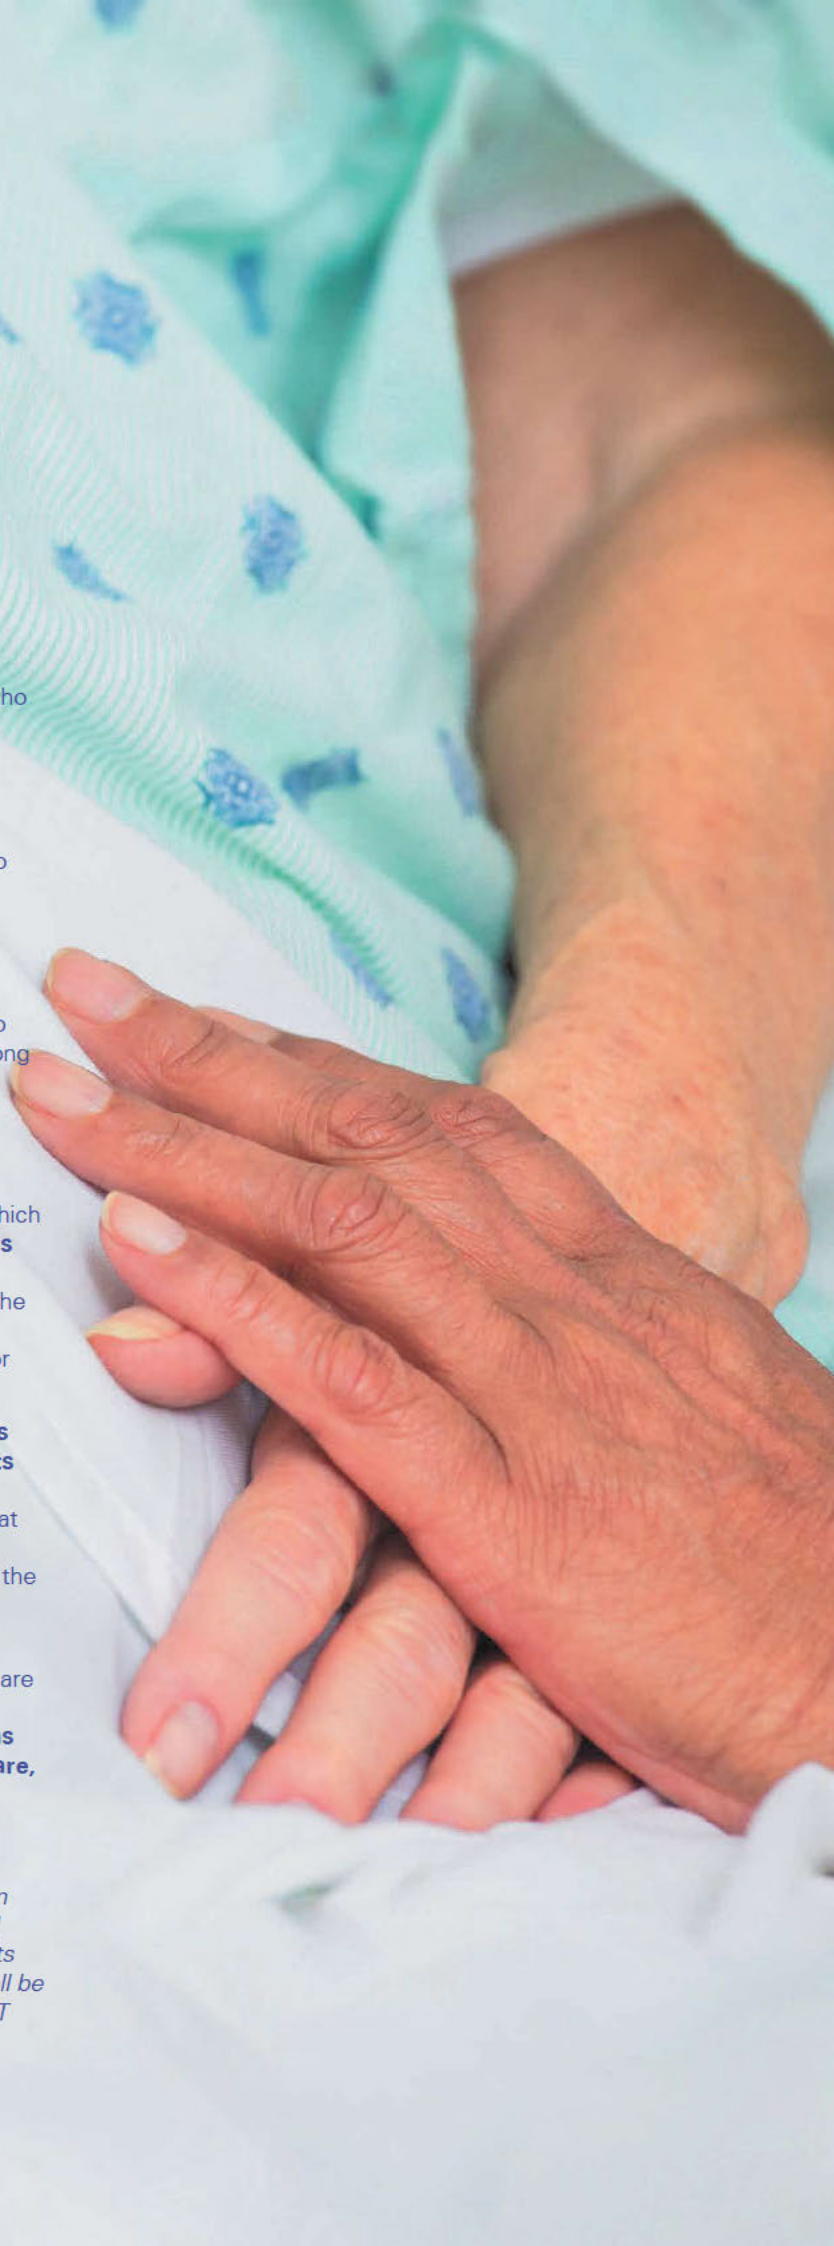 ho
o
o
ong
hich
s
he
or
s
ts
at
the
are
ns
are,
n
ts
ll be
T